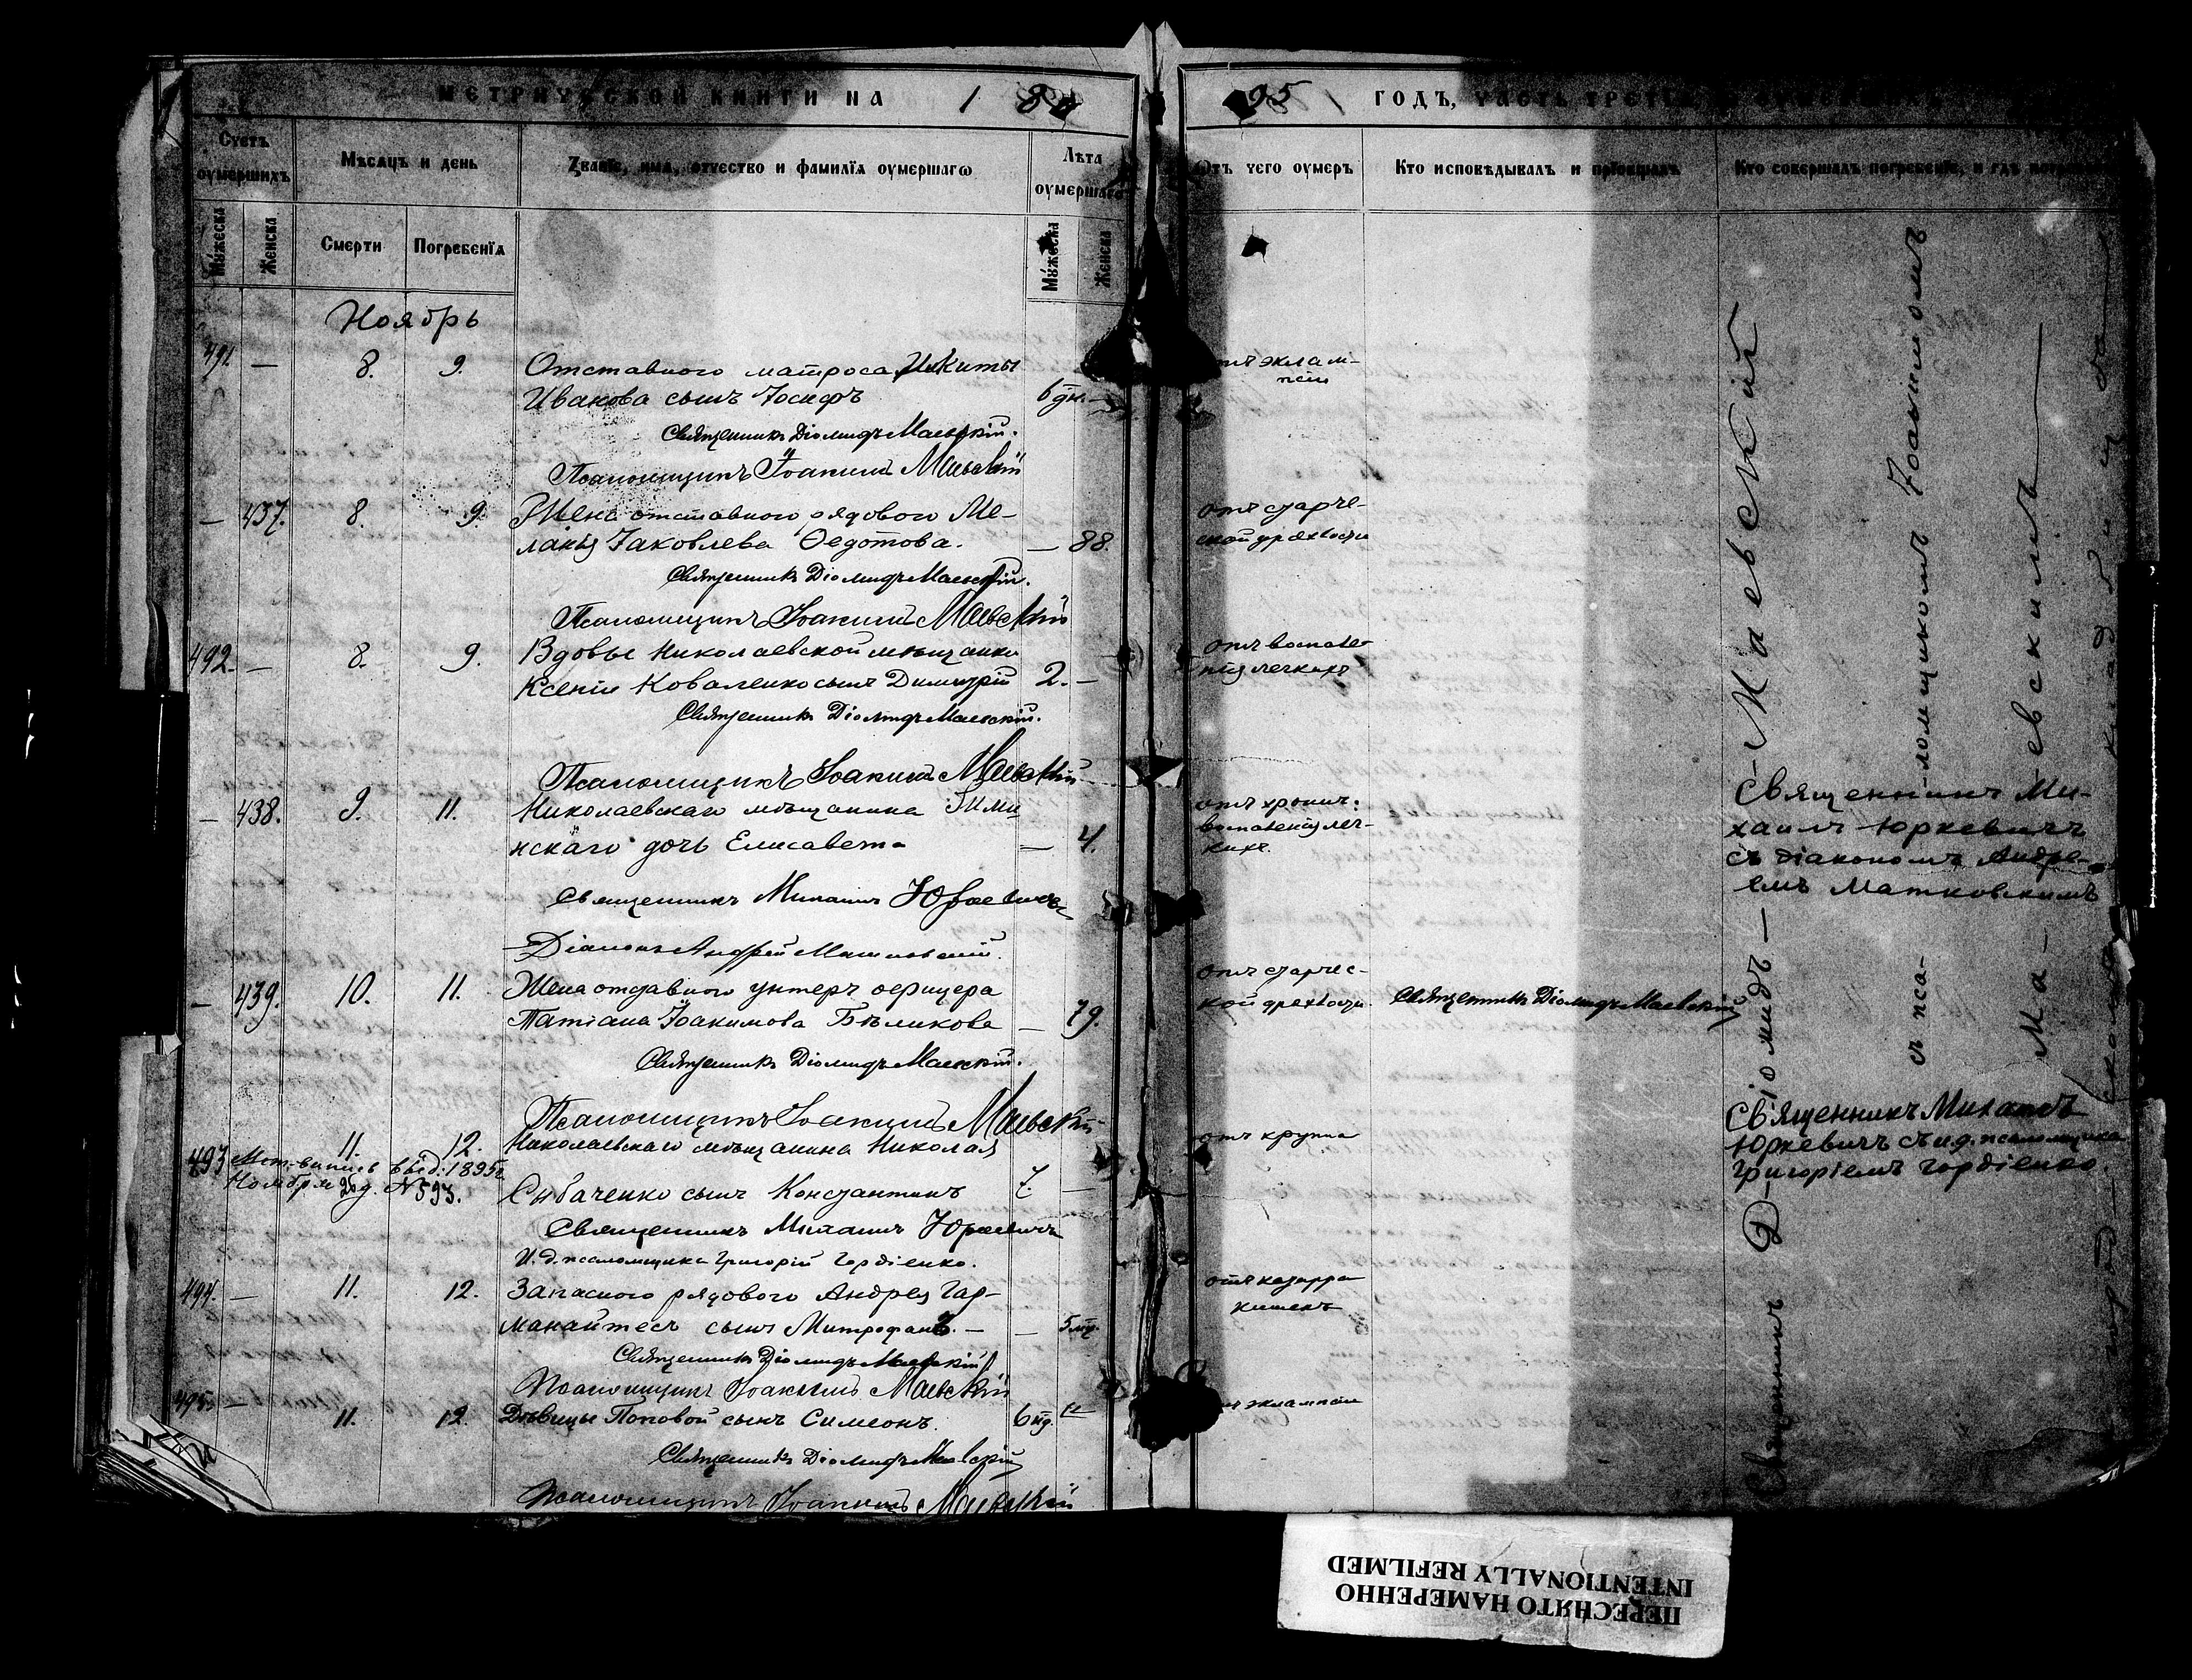 МЕТРИЧЕСКОЙ КНИГИ НА 18
95 ГОДЪ, ЧАСТЬ ТРЕТЬЯ
Счетъ оумершихъ.
Мѣсяцъ и день
Званіе, имя, отчество и фамилія оумершагѡ
Лѣта оумершагѡ
Отъ чего оумеръ
Кто исповѣдывалъ и пріобщалъ
Кто совершалъ погребеніе, и гдѣ
Мужеска
Женска
Смерти
Погребенія
Мужеска
Женска
Ноябрь
491. — 8. 9. Отставного матроса Никиты
Ивакова сынъ Іосифъ 6 дн. —
отъ эклам-
псіи
Священникъ Діомидъ Маевскій.
Псаломщикъ Іоакимъ Маевскій
— 437. 8. 9. Жена отставного рядового Ме-
ланія Іаковлева Ѳедотова. — 88.
отъ старче-
ской дряхлости
Священникъ Діомидъ Маевскій.
Псаломщикъ Іоакимъ Маевскій
492. — 8. 9. Вдовы Николаевской мѣщанки
Ксеніи Коваленко сынъ Димитрій 2. —
отъ воспале-
нія легкихъ
Священникъ Діомидъ Маевскій.
Псаломщикъ Іоакимъ Маевскій
— 438. 9. 11. Николаевскаго мѣщанина
нскаго дочь Елисавета — 4.
отъ хронич.
воспаленія лег-
кихъ.
Священникъ Ми-
хаилъ Юркевичъ
съ діакономъ Андре-
емъ Матковскимъ
Священникъ Михаилъ Юркевичъ
Діаконъ Андрей Матковскій.
— 439. 10. 11. Жена отставного унтеръ офицера
Татіана Іоакимова Бѣликова — 79.
отъ старчес-
кой дряхлости.
Священникъ Діомидъ Маевскій
Священникъ Діомидъ Маевскій.
Псаломщикъ Іоакимъ Маевскій
493 11. 12. Николаевскаго мѣщанина Николая
Мет. выпись выд. 1895 г.
Ноября 20 д. № 593.
Сыбаченко сынъ Константинъ 7. —
отъ крупа
Священникъ Михаилъ
Юркевичъ съ и.д. псаломщика
Григоріемъ Гордіенко.
Священникъ Михаилъ Юркевичъ
И.д. псаломщика Григорій Гордіенко.
494. — 11. 12. Запасного рядового Андрея Гар-
манайтесъ сынъ Митрофанъ. — — 5 мц.
отъ катарра
кишекъ
Священникъ Діомидъ Маевскій
Псаломщикъ Іоакимъ Маевскій
495. — 11. 12. Дѣвицы Поповой сынъ Симеонъ. 6 нд. —
отъ эклампсіи
Священникъ Діомидъ Маевскій
Псаломщикъ Іоакимъ Маевскій
Священникъ Діомидъ — Маевскій
съ пса-ломщикомъ Іоакимомъ
Ма-евскимъ —
ПЕРЕСНЯТО НАМЕРЕННО
INTENTIONALLY REFILMED